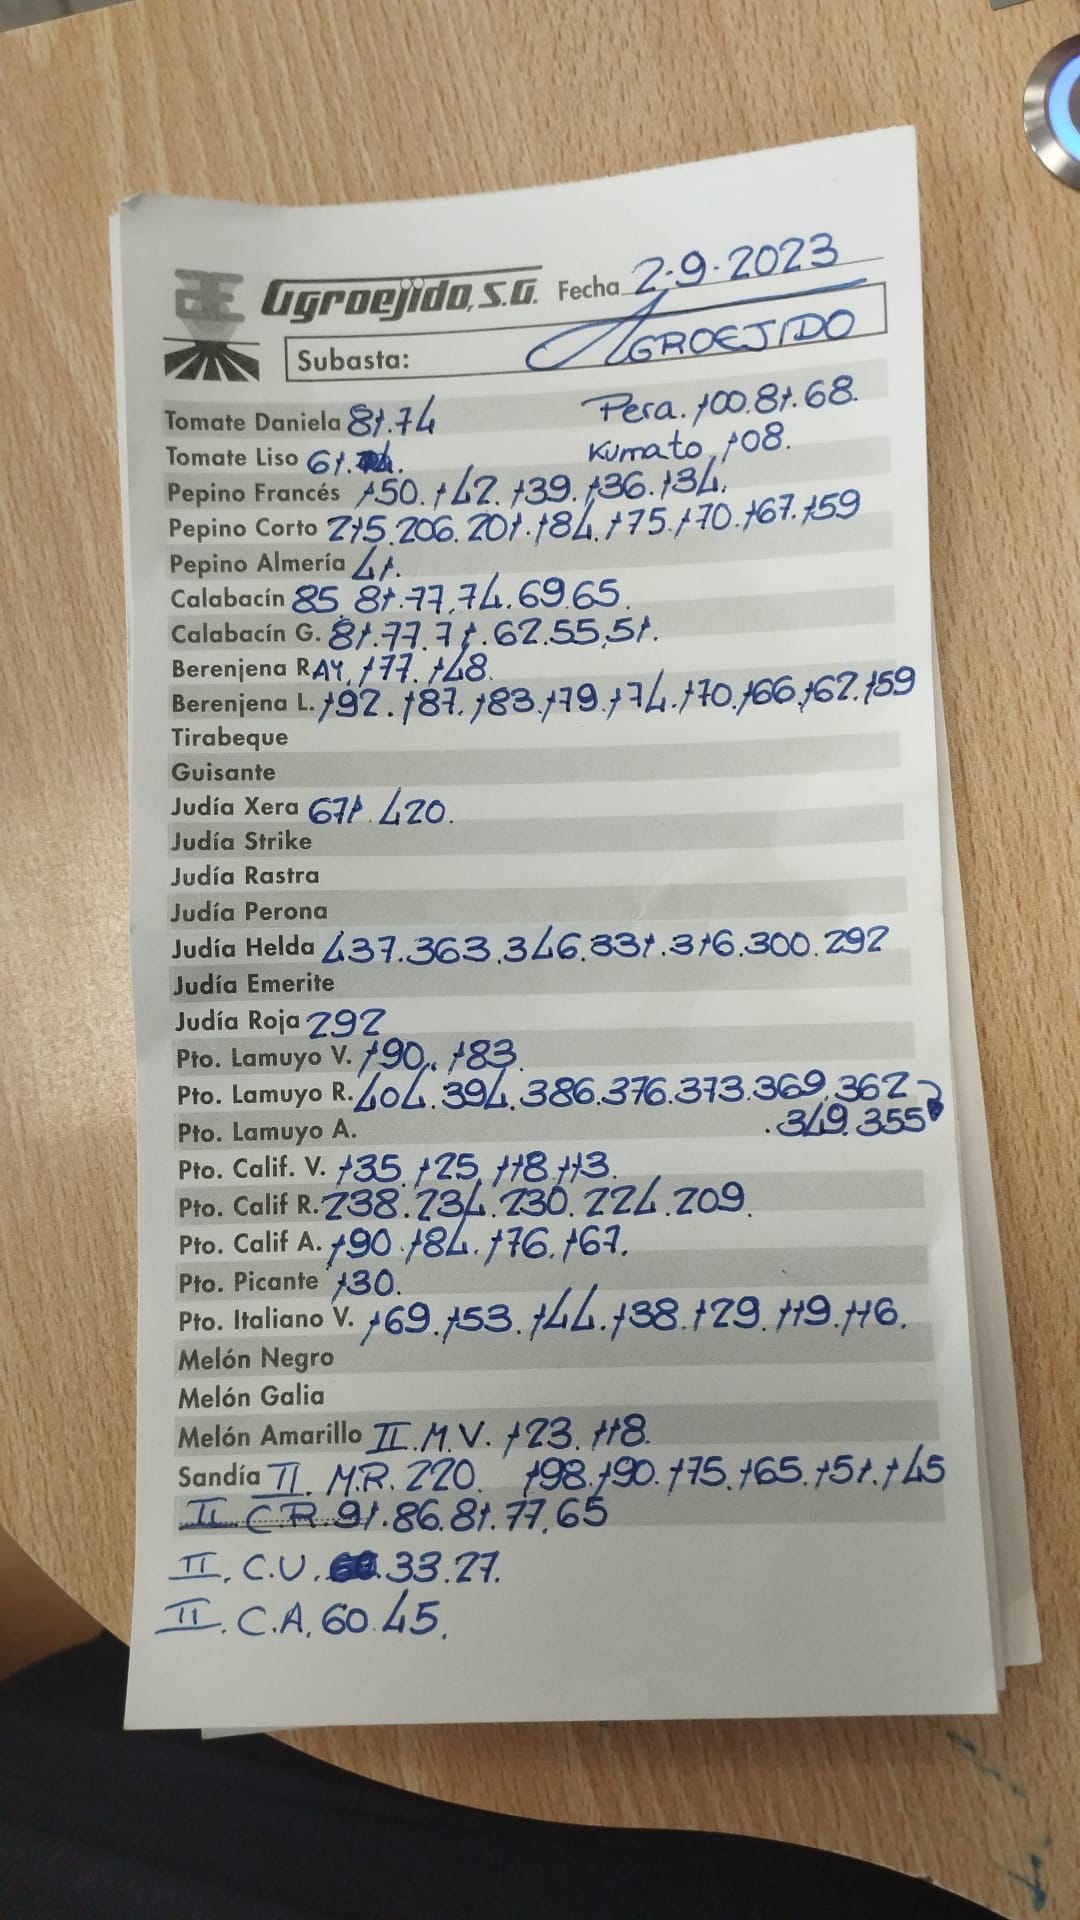 Agroejido, S.A. Fecha 2.9.2023
Subasta: AGROEJIDO
Tomate Daniela 81.74 Pera. 100.81.68.
Tomate Liso 61. Kumato, 108.
Pepino Francés 150.142.139.136.134.
Pepino Corto 215.206.201.184.175.170.167.159
Pepino Almería 41.
Calabacín 85.81.77.74.69.65.
Calabacín G. 81.77.71.62.55.51.
Berenjena RAY. 177.148.
Berenjena L. 192.187.183.179.174.170.166.162.159
Tirabeque
Guisante
Judía Xera 671.420.
Judía Strike
Judía Rastra
Judía Perona
Judía Helda 437.363.346.331.316.300.292
Judía Emerite
Judía Roja 292
Pto. Lamuyo V. 190.183.
Pto. Lamuyo R. 404.394.386.376.373.369.362
Pto. Lamuyo A. .349.355
Pto. Calif. V. 135.125.118.113.
Pto. Calif R. 238.234.230.224.209.
Pto. Calif A. 190.184.176.167.
Pto. Picante 130.
Pto. Italiano V. 169.153.144.138.129.119.116.
Melón Negro
Melón Galia
Melón Amarillo II.M.V. 123.118.
Sandía II. M.R. 220. 198.190.175.165.151.145
II. C.R. 91.86.81.77.65
II. C.U. 33.27.
II. C.A. 60.45.